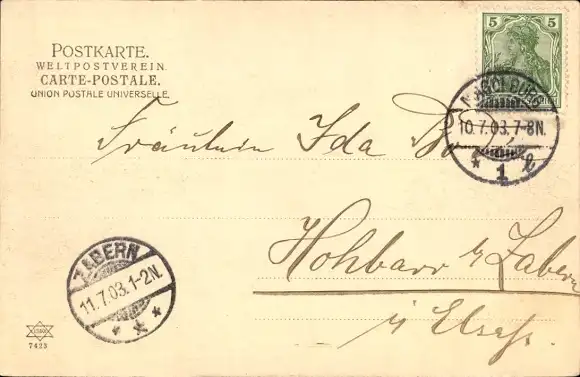 POSTKARTE.
WELTPOSTVEREIN.
CARTE-POSTALE.
UNION POSTALE UNIVERSELLE.
5 5
10.7.03.7-8N.
* 1 l
Fräulein Ida
Hohbarr b/ Zabern
i/ Elsaß.
ZABERN
11.7.03.1-2N.
* * *
7423